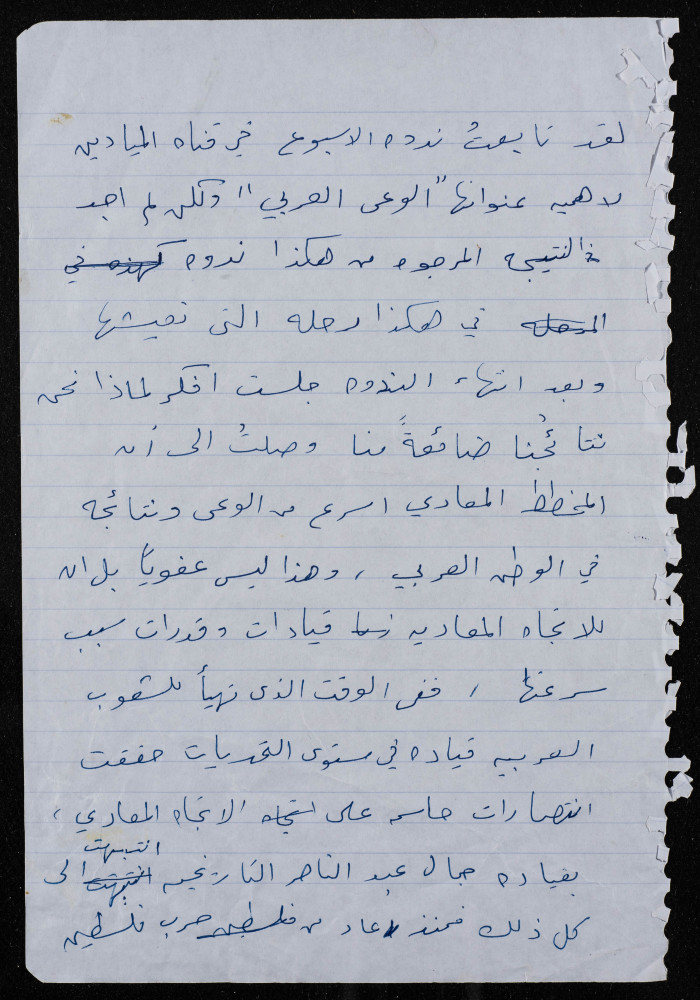 لقد تابعتُ ندوه الاسبوع في قناه الميادين
لاهميه عنوانها "الوعى العربي" ولكن لم اجد
النتيجه المرجوه من هكذا ندوه كهذه في
المرحله في هكذا مرحله التى نعيشها
وبعد انتهاء الندوه جلست افكر لماذا نحن
نتائجُنا ضائعةً منا وصلتُ الى أن
المخطط المعادي اسرع من الوعى ونتائجه
في الوطن العربي ، وهذا ليس عفويًا بل ان
للاتجاه المعاديه قيادات وقدرات سبب
سرعتها ، ففى الوقت الذى تهيأ للشعوب
العربيه قياده في مستوى التحديات حققت
انتصارات حاسمه على اتجاه الاتجاه المعادي ،
بقياده جمال عبد الناصر التاريخيه انتبهت الى
كل ذلك فمنذ عاد من فلسطين حرب فلسطين